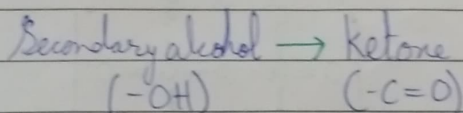 Secondary alcohol → Ketone
(-OH) (-C=O)